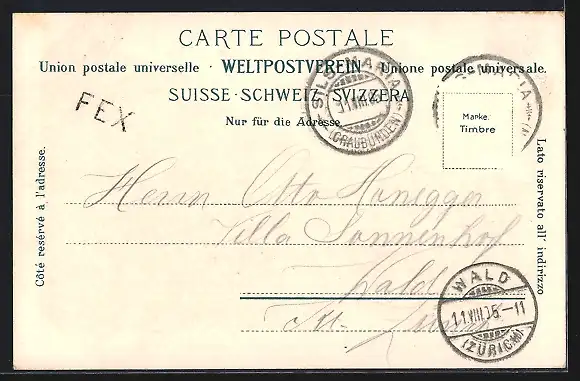 CARTE POSTALE
Union postale universelle · WELTPOSTVEREIN · Unione postale universale.
SUISSE · SCHWEIZ · SVIZZERA
Nur für die Adresse
FEX
SILS-MARIA
(GRAUBÜNDEN)
Marke.
Timbre
Côté reservé à l'adresse.
Lato riservato all' indirizzo
Herrn Otto Honegger
Villa Sonnenhof
Wald
Kt. Zürich
WALD
11.VIII.05.-11
(ZÜRICH)